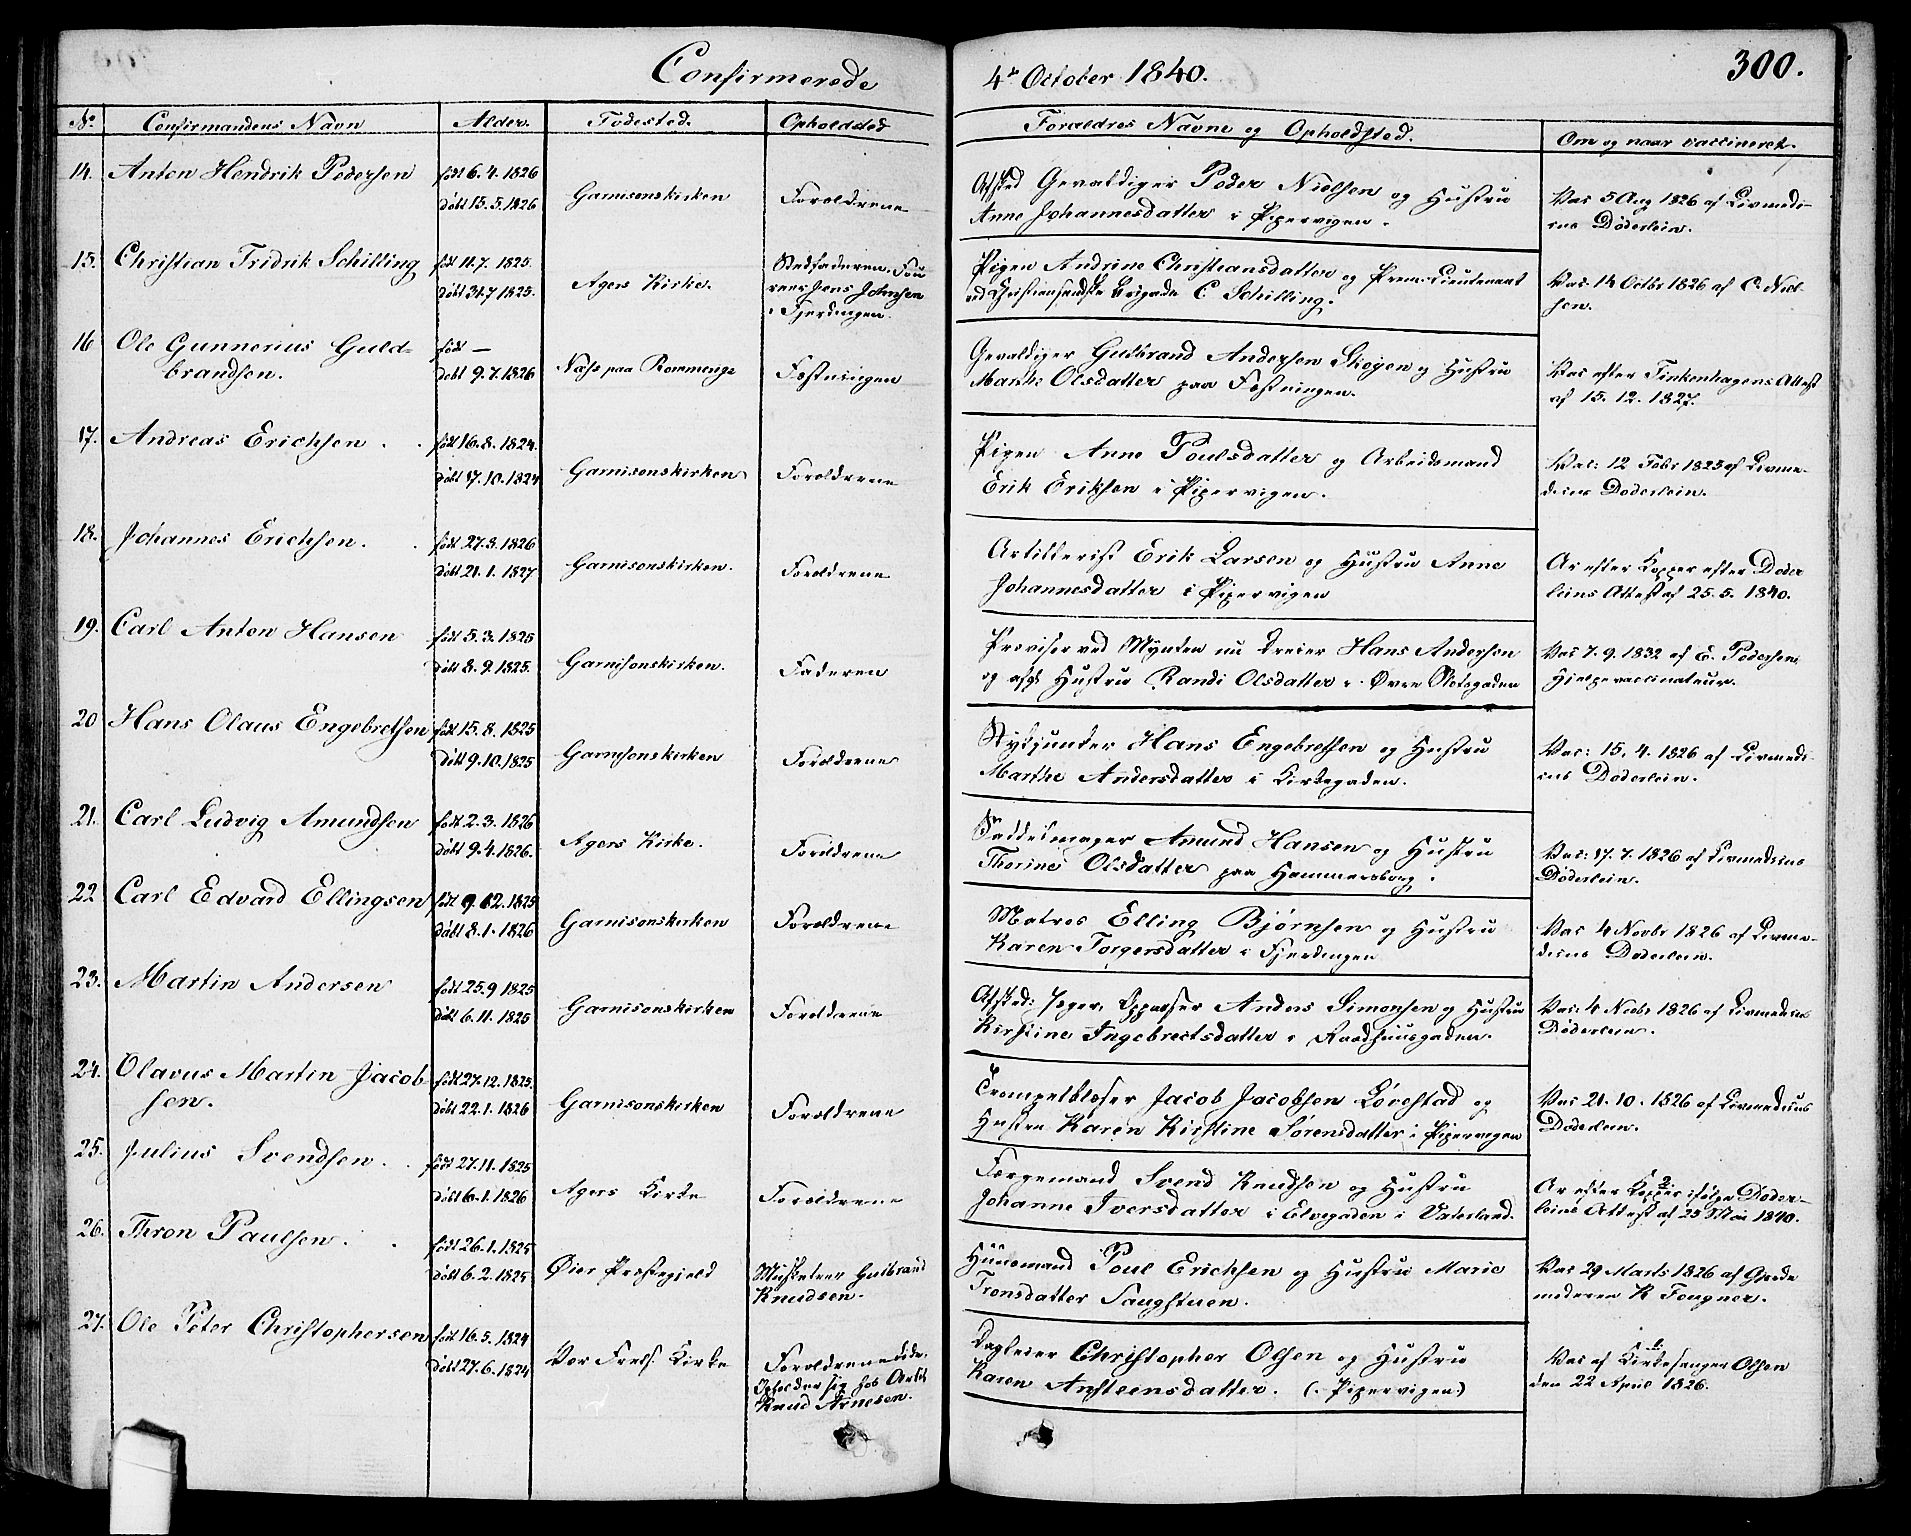 Confirmerede
4de October 1840.
300.
No Confirmandens Navn Alder. Fødested. Opholdsted Forældres Navne og Opholdssted. Om og naar vaccineret.
14. Anton Hendrik Pedersen født 6.4.1826
døbt 15.5.1826 Garnisonskirken Forældrene
Afsked Gevaldiger Peder Nielsen og Hustru
Anne Johannesdatter i Pipervigen.
Vac 5 Aug 1826 af Livmedi-
cus Döderlein.
15. Christian Fridrik Schilling født 11.7.1825
døbt 31.7 1825. Agers Kirke.
Stedfaderen Fou-
reer Jens Johnsen
i Fjerdingen.
Pigen Andrine Christiansdatter og Prem: Lieutenant
ved Christiansandske Brigade C Schilling.
Vac. 14 Octbr 1826 af C. Niel-
sen.
16 Ole Gunnerius Guld-
brandsen.
født —
døbt 9.7.1826 Næss paa Rommerige Fæstningen
Gevaldiger Gulbrand Andersen Skogen og Hustru
Marthe Olsdatter paa Fæstningen.
Vac efter Finkenhagens Attest
af 15. 12. 1827.
17. Andreas Erichsen . . født 16.8.1824.
døbt 17.10.1824 Garnisonskirken Forældrene
Pigen Anne Poulsdatter og Arbeidsmand
Erik Eriksen i Pipervigen.
Vac: 12 Febr 1825 af Livme-
dicus Döderlein.
18. Johannes Erichsen. . født 27.8.1826
døbt 21.1.1827 Garnisonskirken. Forældrene
Artillerist Erik Larsen og Hustru Anne
Johannesdatter i Pipervigen
Ar efter Kopper efter Döder
leins Attest af 25. 5. 1840.
19. Carl Anton Hansen født 5.3.1825
døbt 8.9.1825. Garnisonskirken. Faderen
ved Mynten nu Dreier Hans Andersen
og afg: Hustru Randi Olsdatter i Øvre Slotsgaden
Vac 7.9.1832 af E. Pedersen
Hjelpevaccinateur.
20 Hans Olaus Engebretsen født 15.8.1825
døbt 9.10.1825 Garnisonskirken Forældrene
Stykjunker Hans Engebretsen og Hustru
Marthe Andersdatter i Kirkegaden.
Vac: 15. 4. 1826 af Livmedi-
cus Döderlein.
21. Carl Ludvig Amundsen født 2.3.1826
døbt 9.4.1826. Agers Kirke. Forældrene
Saddelmager Amund Hansen og Hustru
Thorine Olsdatter paa Hammersborg.
Vac: 17.7.1826 af Livmedicus
Döderlein.
22 Carl Edvard Ellingsen født 9.12.1825
døbt 8.1.1826 Garnisonskirken Forældrene
Matros Elling Bjørnsen og Hustru
Karen Torgersdatter i Fjerdingen
Vac 4 Novbr 1826 af Livme-
dicus Döderlein.
23. Martin Andersen født 25.9 1825
døbt 6.11.1825 Garnisonskirken Forældrene
Afsked: Jæger, Opvasser Anders Simonsen og Hustru
Kirstine Ingebrectsdatter i Raadhuusgaden.
Vac: 4 Novbr 1826 af Livmedicus
Döderlein.
24. Olavus Martin Jacob
sen.
født 27.12.1825.
døbt 22.1.1826 Garnisonskirken Forældrene
Trompetblæser Jacob Jacobsen Lørestad og
Hustru Karen Kirstine Sørensdatter i Pipervigen
Vac 21.10.1826 af Livmedicus
Döderlein.
25. Julius Svendsen. . født 27.11.1825
døbt 6.1.1826 Agers Kirke Forældrene
Færgemand Svend Knudsen og Hustru
Johanne Iversdatter i Elvegaden i Vaterland.
Ar efter Kopper ifølge Döder-
leins Attest af 25 Mai 1840.
26. Thron Paulsen. . født 26.1.1825
døbt 6.2.1825 Øier Præstegjeld
Musketeer Gulbrand
Knudsen.
Huusmand Poul Erichsen og Hustru Marie
Tronsdatter Saugstuen.
Vac 29 Marts 1826 af Gjorde
moderen K Fougner.
27. Ole Peter Christophersen født 16.5.1824
døbt 27.6.1824 Vor Frels: Kirke
Forældrene
Opholder sig hos
Knud Arnesen.
Dagleier Christopher Olsen og Hustru
Karen Anstensdatter. (i Pipervigen)
Vac af Kirkesanger Olsen
den 22 April 1826.